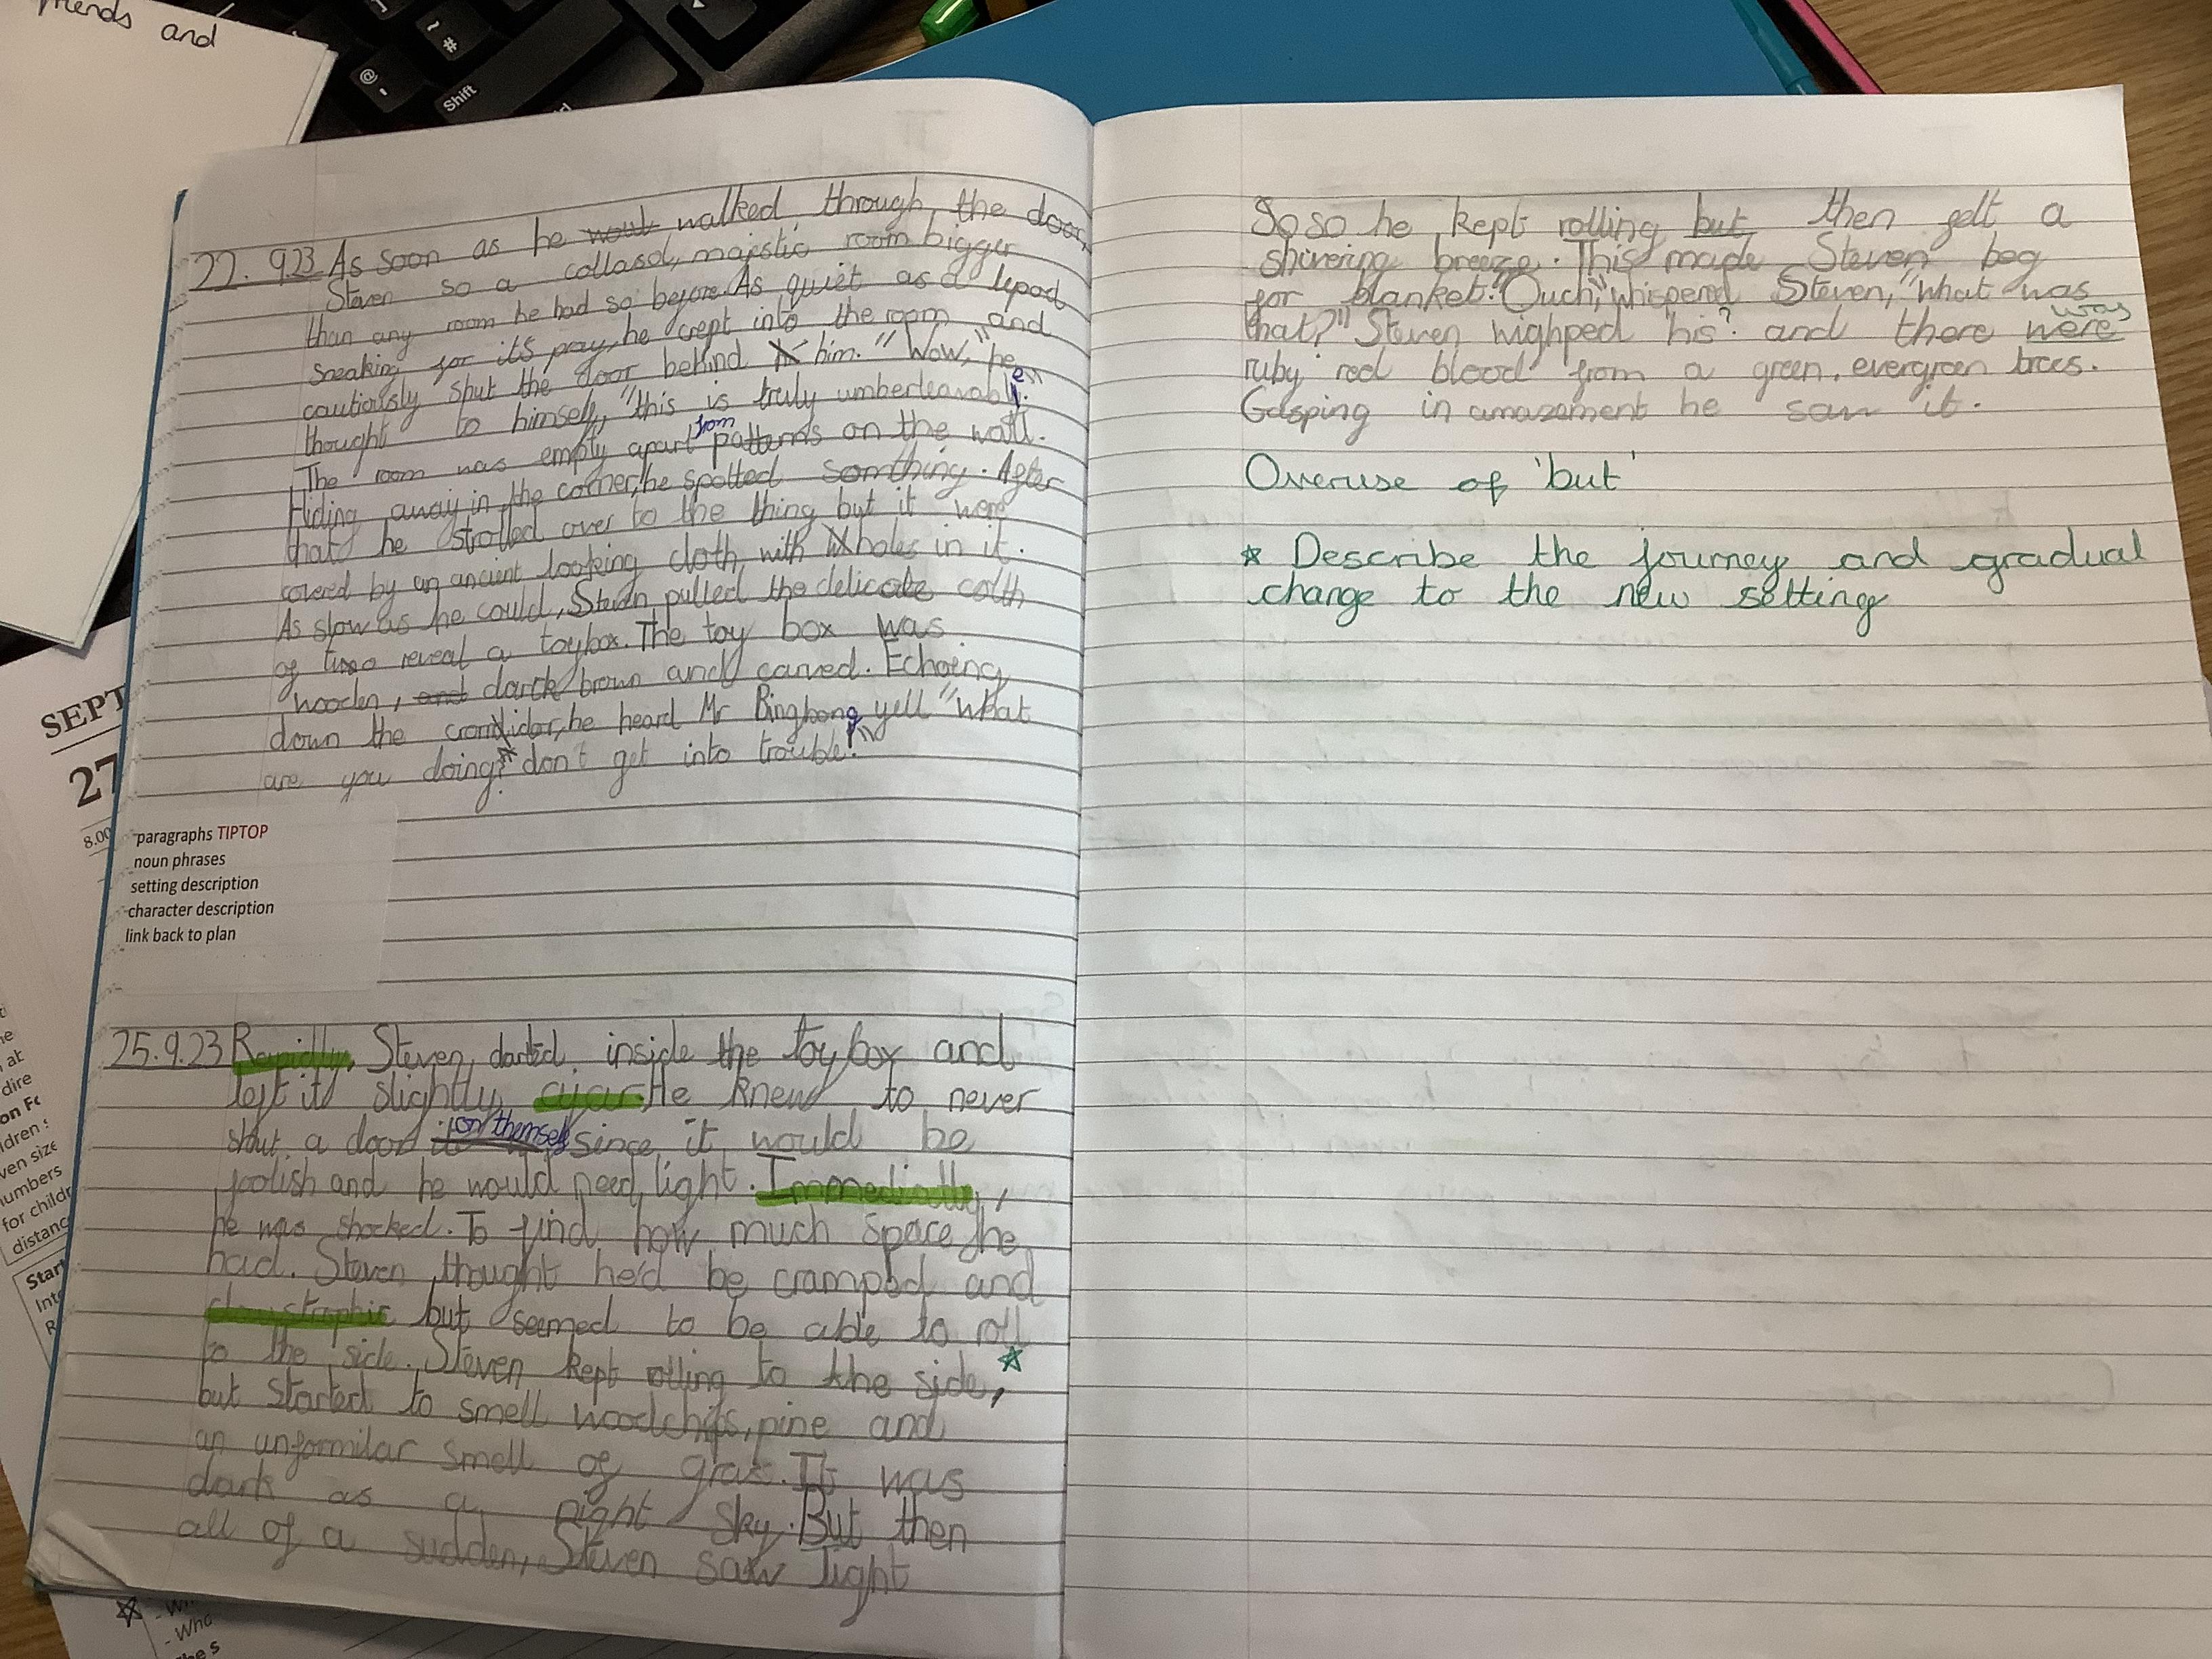 friends and
@
~
#
Shift
22.9.23 As soon as he walked through the door,
Steven so a collasol, majestic room bigger
than any room he had so before. As quiet as a lepod
sneaking for it's pray, he crept into the room and
cautiously shut the door behind him. "Wow," he
thought to himself, "this is truly umberleavable."
The room was empty apart from patterns on the wall.
Hiding away in the corner, he spotted somthing. After
that he strolled over to the thing but it were
covered by an ancient looking cloth, with holes in it.
As slow as he could, Steven pulled the delicate colth
of to reveal a toybox. The toy box was
wooden, and darck brown and carved. Echoing
down the corridor, he heard Mr Bingbong yell "what
are you doing? don't get into trouble!"
paragraphs TIPTOP
noun phrases
setting description
character description
link back to plan
25.9.23 Rapidly, Steven darted inside the toy box and
left it slightly ajar. He knew to never
shut a door on themself since it would be
foolish and he would need light. Immediatly,
he was shocked. To find how much space he
had. Steven thought he'd be cramped and
claustraphic but seemed to be able to roll
to the side. Steven kept rolling to the side,
but started to smell woodchips, pine and
an unformilar smell of grass. It was
dark as a night sky. But then
all of a sudden, Steven saw light
So so he kept rolling but then felt a
shivering breeze. This made Steven beg
for blanket. "Ouch," whispered Steven, "what was
that?" Steven wighped his? and there were was
ruby red blood from a green, evergreen trees.
Gasping in amazement he saw it.
Overuse of 'but'
* Describe the journey and gradual
change to the new setting
SEPT
27
8.00
dire
numbers
for childr
distanc
Start